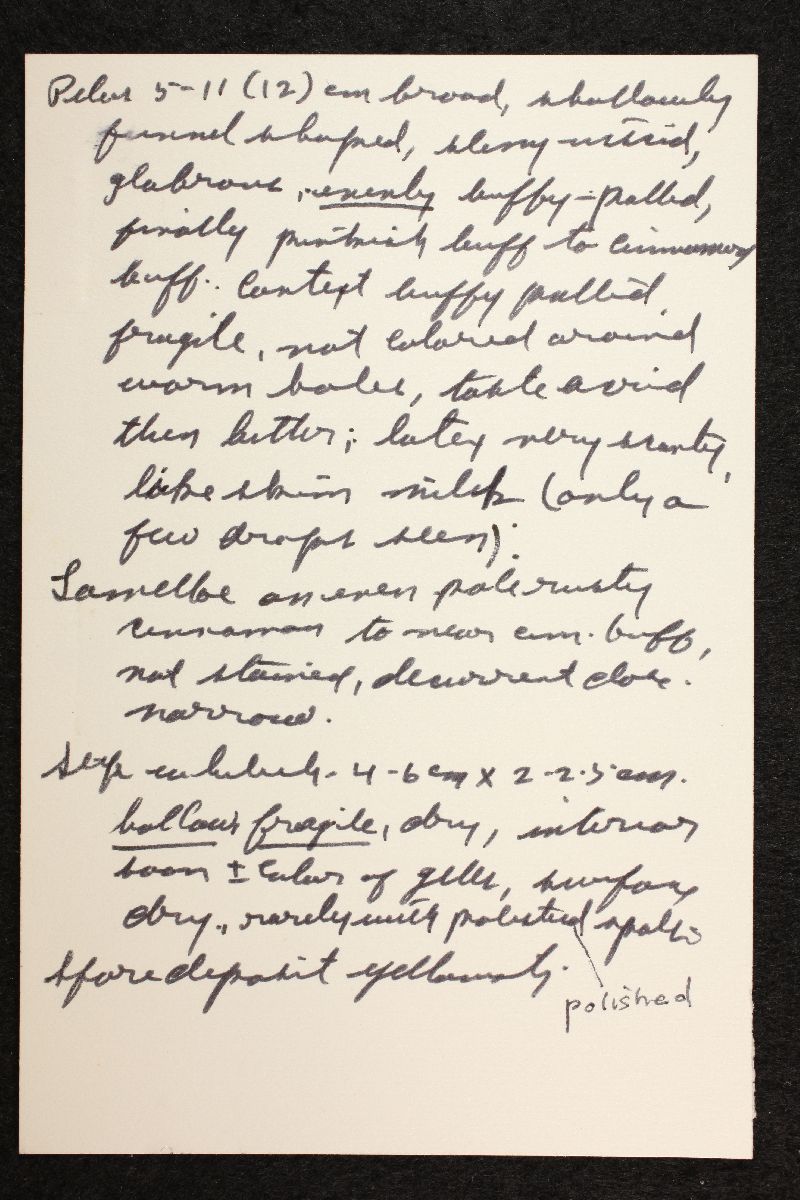 Pileus 5-11 (12) cm broad, shallowly
funnel shaped, slimy-viscid,
glabrous, evenly buffy-pallid,
finally pinkish buff to cinnamon
buff. Context buffy pallid,
fragile, not colored around
worm holes, taste acrid
then bitter; latex very scanty,
like skim milk (only a
few drops seen).
Lamellae an even pale rusty
cinnamon to near cinn. buff,
not stained, decurrent close.
narrow.
Stipe 4-6 cm x 2-2.5 cm.
hollow fragile, dry, interior
soon ± color of gills, surface
dry, rarely with polished spots
polished
Spore deposit yellowish.